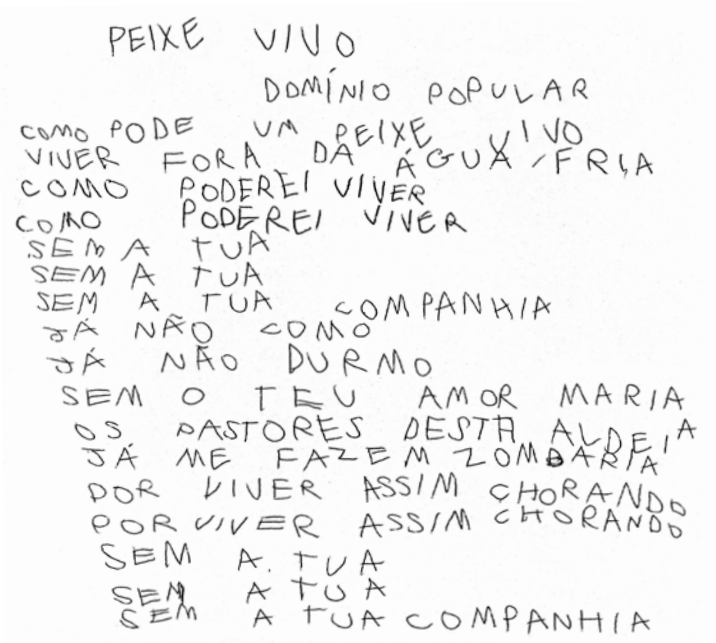 PEIXE VIVO
DOMÍNIO POPULAR
COMO PODE UM PEIXE VIVO
VIVER FORA DA ÁGUA FRIA
COMO PODEREI VIVER
COMO PODEREI VIVER
SEM A TUA
SEM A TUA
SEM A TUA COMPANHIA
JÁ NÃO COMO
JÁ NÃO DURMO
SEM O TEU AMOR MARIA
OS PASTORES DESTA ALDEIA
JÁ ME FAZEM ZOMBARIA
POR VIVER ASSIM CHORANDO
POR VIVER ASSIM CHORANDO
SEM A. TUA
SEM A TUA
SEM A TUA COMPANHIA